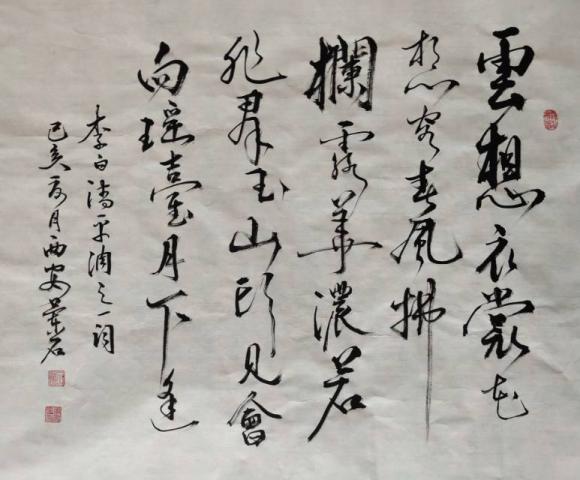 雲想衣裳花
想容春風拂
欄露華濃若
非群玉山頭見會
向瑤臺月下逢
李白清平調之一詞
己亥夏月西安石